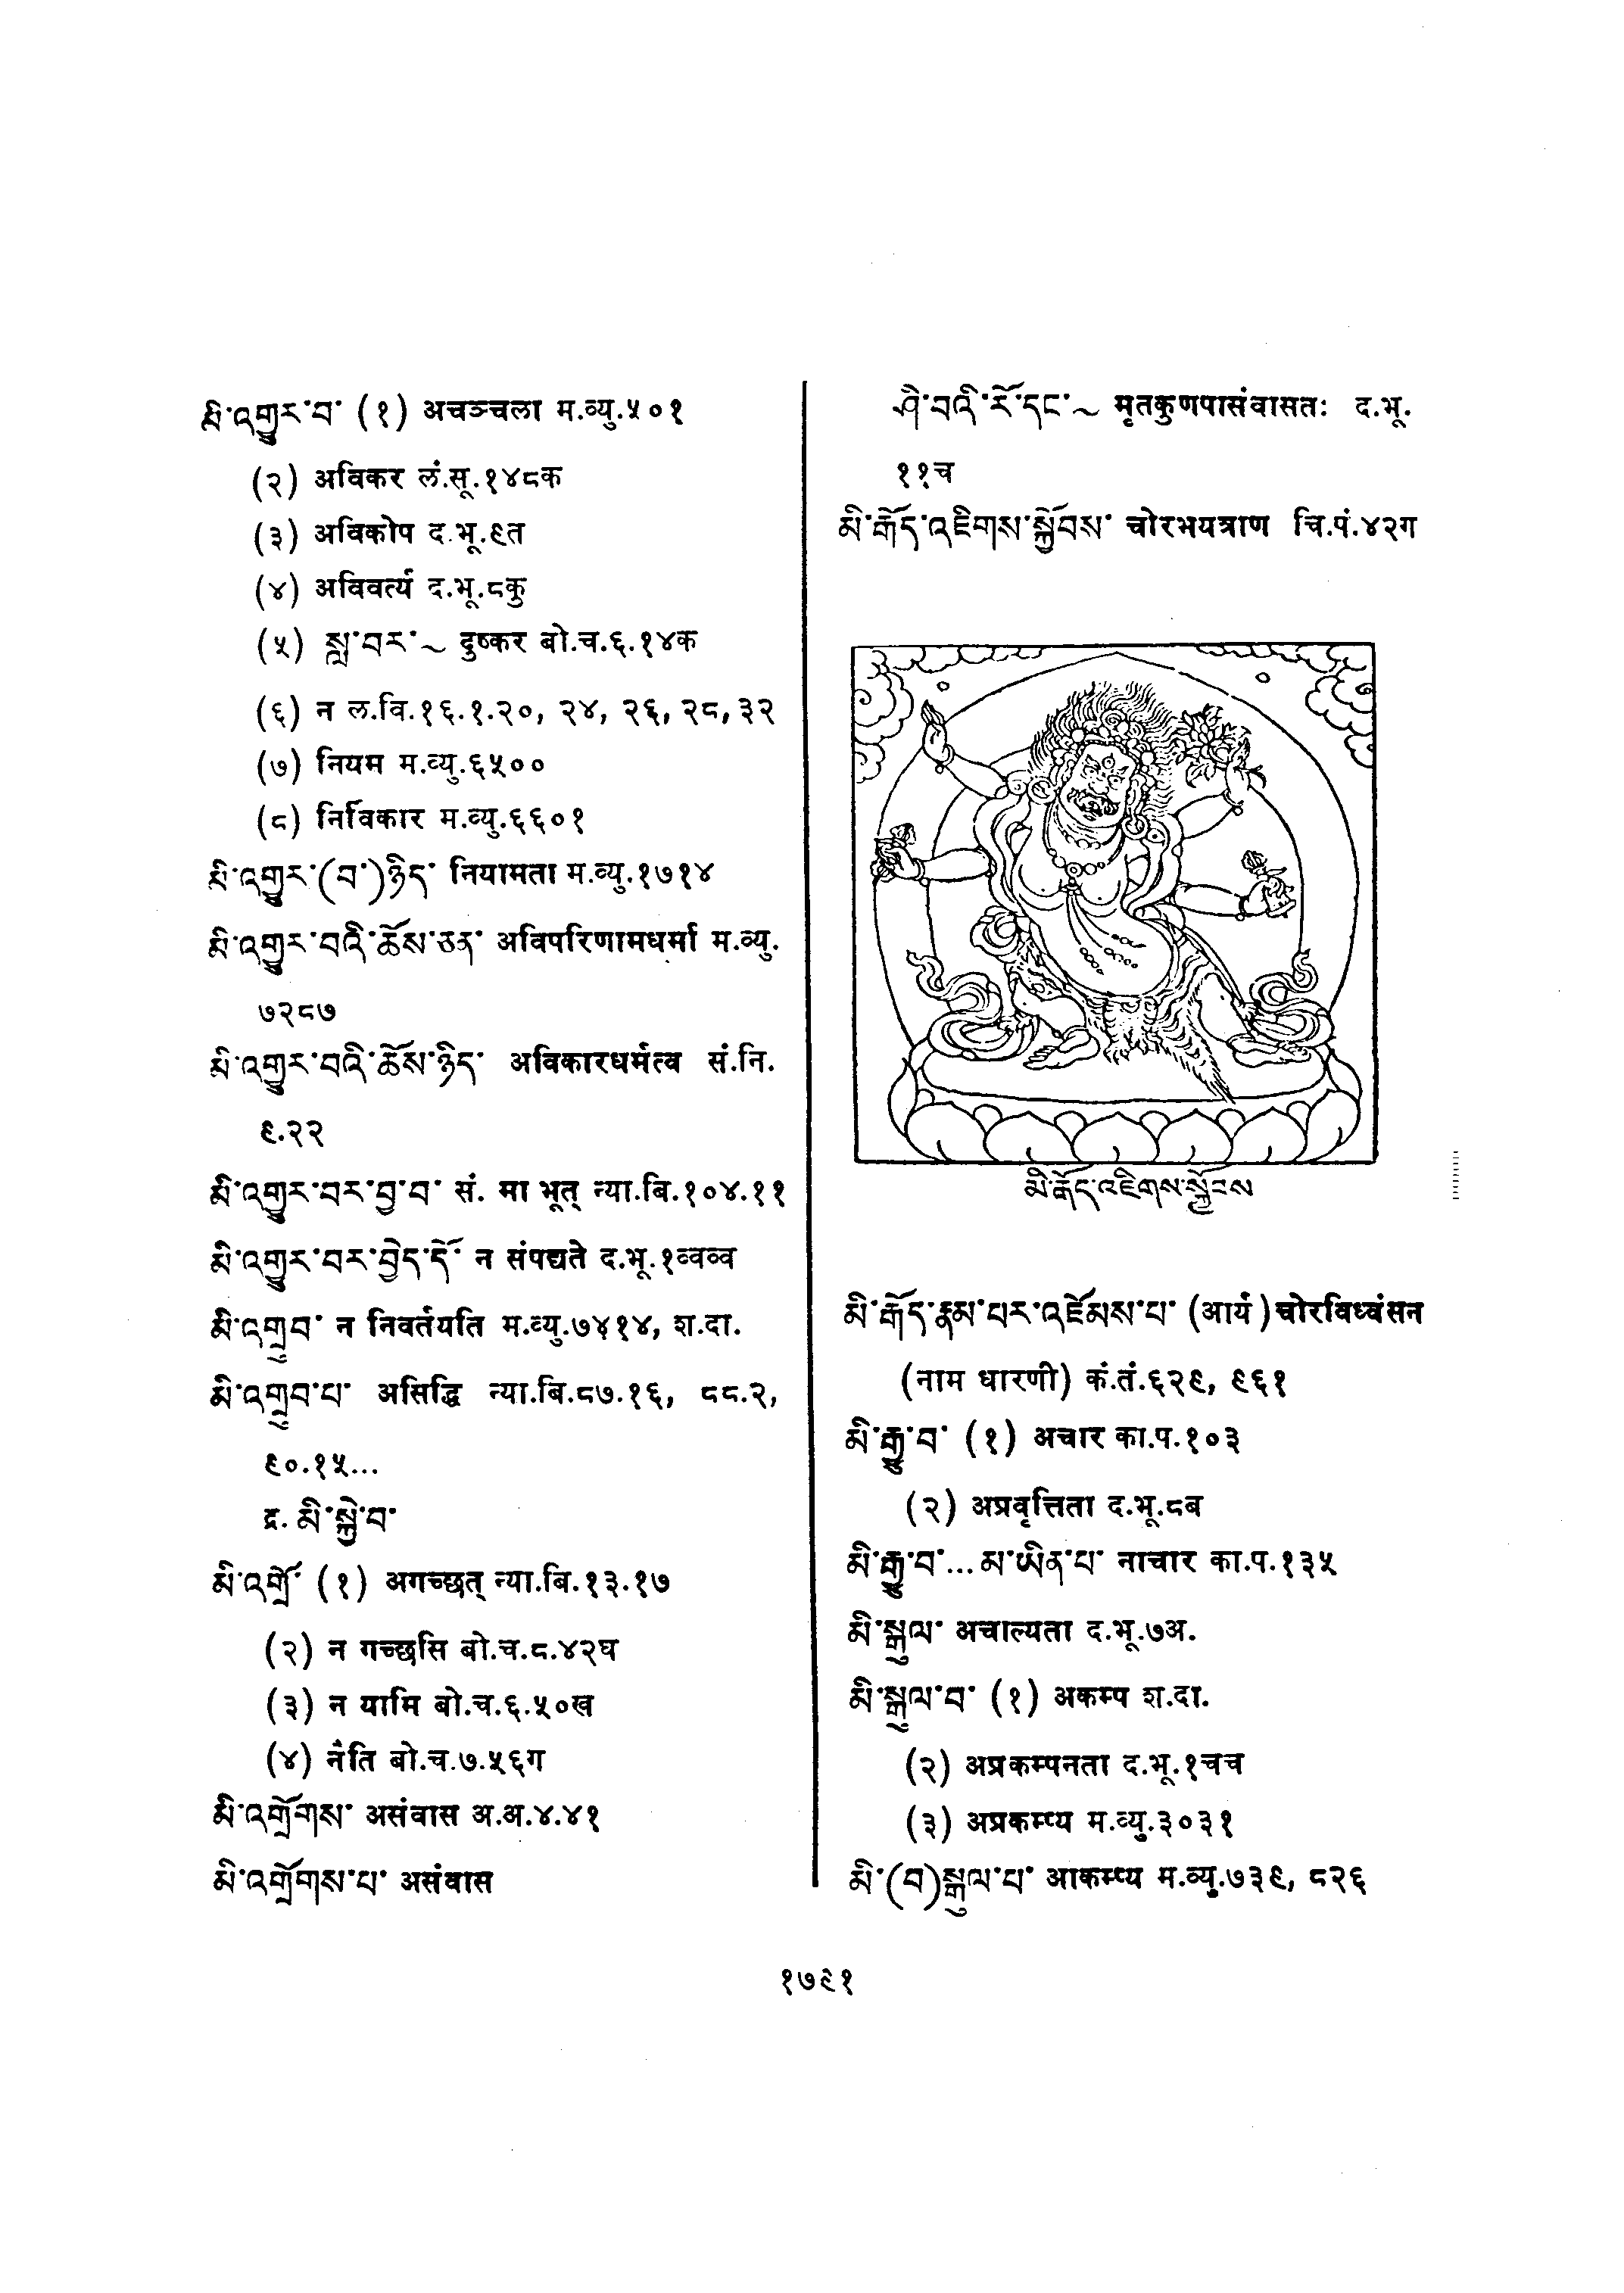 མི་འགྱུར་བ་ (१) अचञ्चला म.व्यु.५०१
(२) अविकर लं.सू.१४८क
(३) अविकोप द.भू.९त
(४) अविवर्त्य द.भू.८कु
(५) སླ་བར་~ दुष्कर बो.च.६.१४क
(६) न ल.वि.१६.१.२०, २४, २६, २८, ३२
(७) नियम म.व्यु.६५००
(८) निर्विकार म.व्यु.६६०१
མི་འགྱུར་(བ་)ཉིད་ नियामता म.व्यु.१७१४
མི་འགྱུར་བའི་ཆོས་ཅན་ अविपरिणामधर्मा म.व्यु.
७२८७
མི་འགྱུར་བའི་ཆོས་ཉིད་ अविकारधर्मत्व सं.नि.
९.२२
མི་འགྱུར་བར་བྱ་བ་ सं. मा भूत् न्या.बि.१०४.११
མི་འགྱུར་བར་བྱེད་དོ་ न संपद्यते द.भू.१व्वव्व
མི་འགྲུབ་ न निवर्तयति म.व्यु.७४१४, श.दा.
མི་འགྲུབ་པ་ असिद्धि न्या.बि.८७.१६, ८८.२,
९०.१५...
द्र. མི་སྐྱེ་བ་
མི་འགྲོ་ (१) अगच्छत् न्या.बि.१३.१७
(२) न गच्छसि बो.च.८.४२घ
(३) न यामि बो.च.६.५०ख
(४) नैति बो.च.७.५६ग
མི་འགྲོགས་ असंवास अ.अ.४.४१
མི་འགྲོགས་པ་ असंवास
ཤི་བའི་རོ་དང་~ मृतकुणपासंवासतः द.भू.
११च
མི་རྒོད་འཇིགས་སྐྱོབས་ चोरभयत्राण चि.पं.४२ग
མི་རྒོད་འཇིགས་སྐྱོབས
མི་རྒོད་རྣམ་པར་འཇོམས་པ་ (आर्य) चोरविध्वंसन
(नाम धारणी) कं.तं.६२९, ९६१
མི་རྒྱུ་བ་ (१) अचार का.प.१०३
(२) अप्रवृत्तिता द.भू.८ब
མི་རྒྱུ་བ་...མ་ཡིན་པ་ नाचार का.प.१३५
མི་སྒུལ་ अचाल्यता द.भू.७अ.
མི་སྒུལ་བ་ (१) अकम्प श.दा.
(२) अप्रकम्पनता द.भू.१चच
(३) अप्रकम्प्य म.व्यु.३०३१
མི་(བ)སྒུལ་པ་ आकम्प्य म.व्यु.७३९, ८२६
१७९१